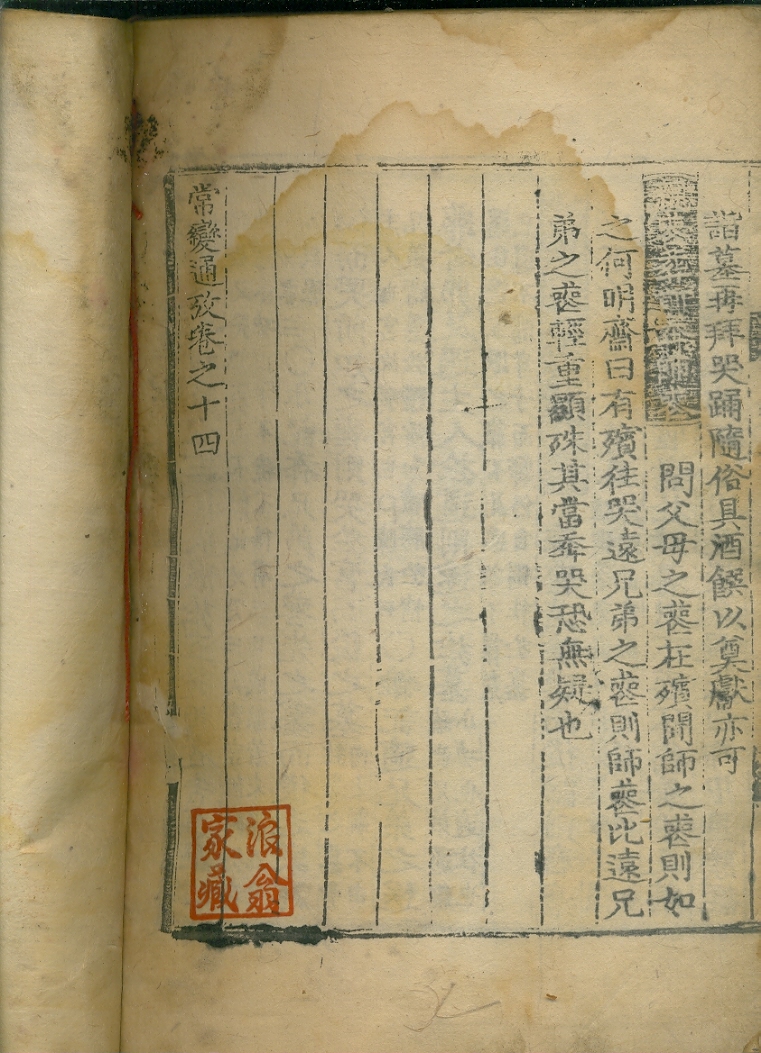 詣墓再拜哭踊隨俗具酒饌以奠獻亦可
問父母之喪在殯聞師之喪則如
之何明齋曰有殯往哭遠兄弟之喪則師喪比遠兄
弟之喪輕重顯殊其當奔哭恐無疑也
常變通攷卷之十四
浪翁
家藏